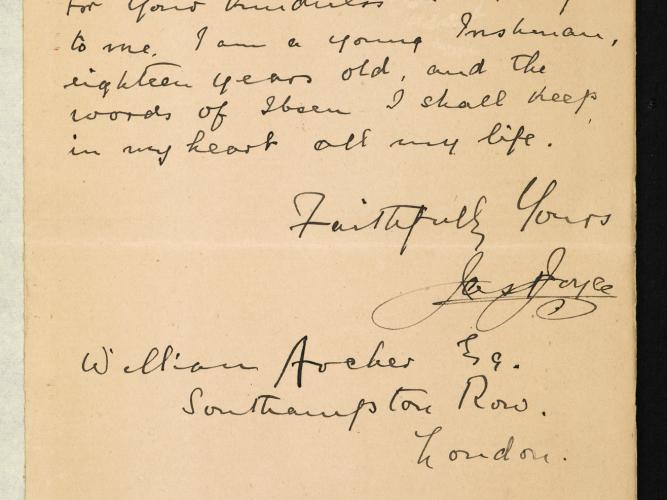 for your kindness
to me. I am a young Irishman,
eighteen years old, and the
words of Ibsen I shall keep
in my heart all my life.
Faithfully Yours
Jas A Joyce
William Archer Esq.
Southampton Row.
London.